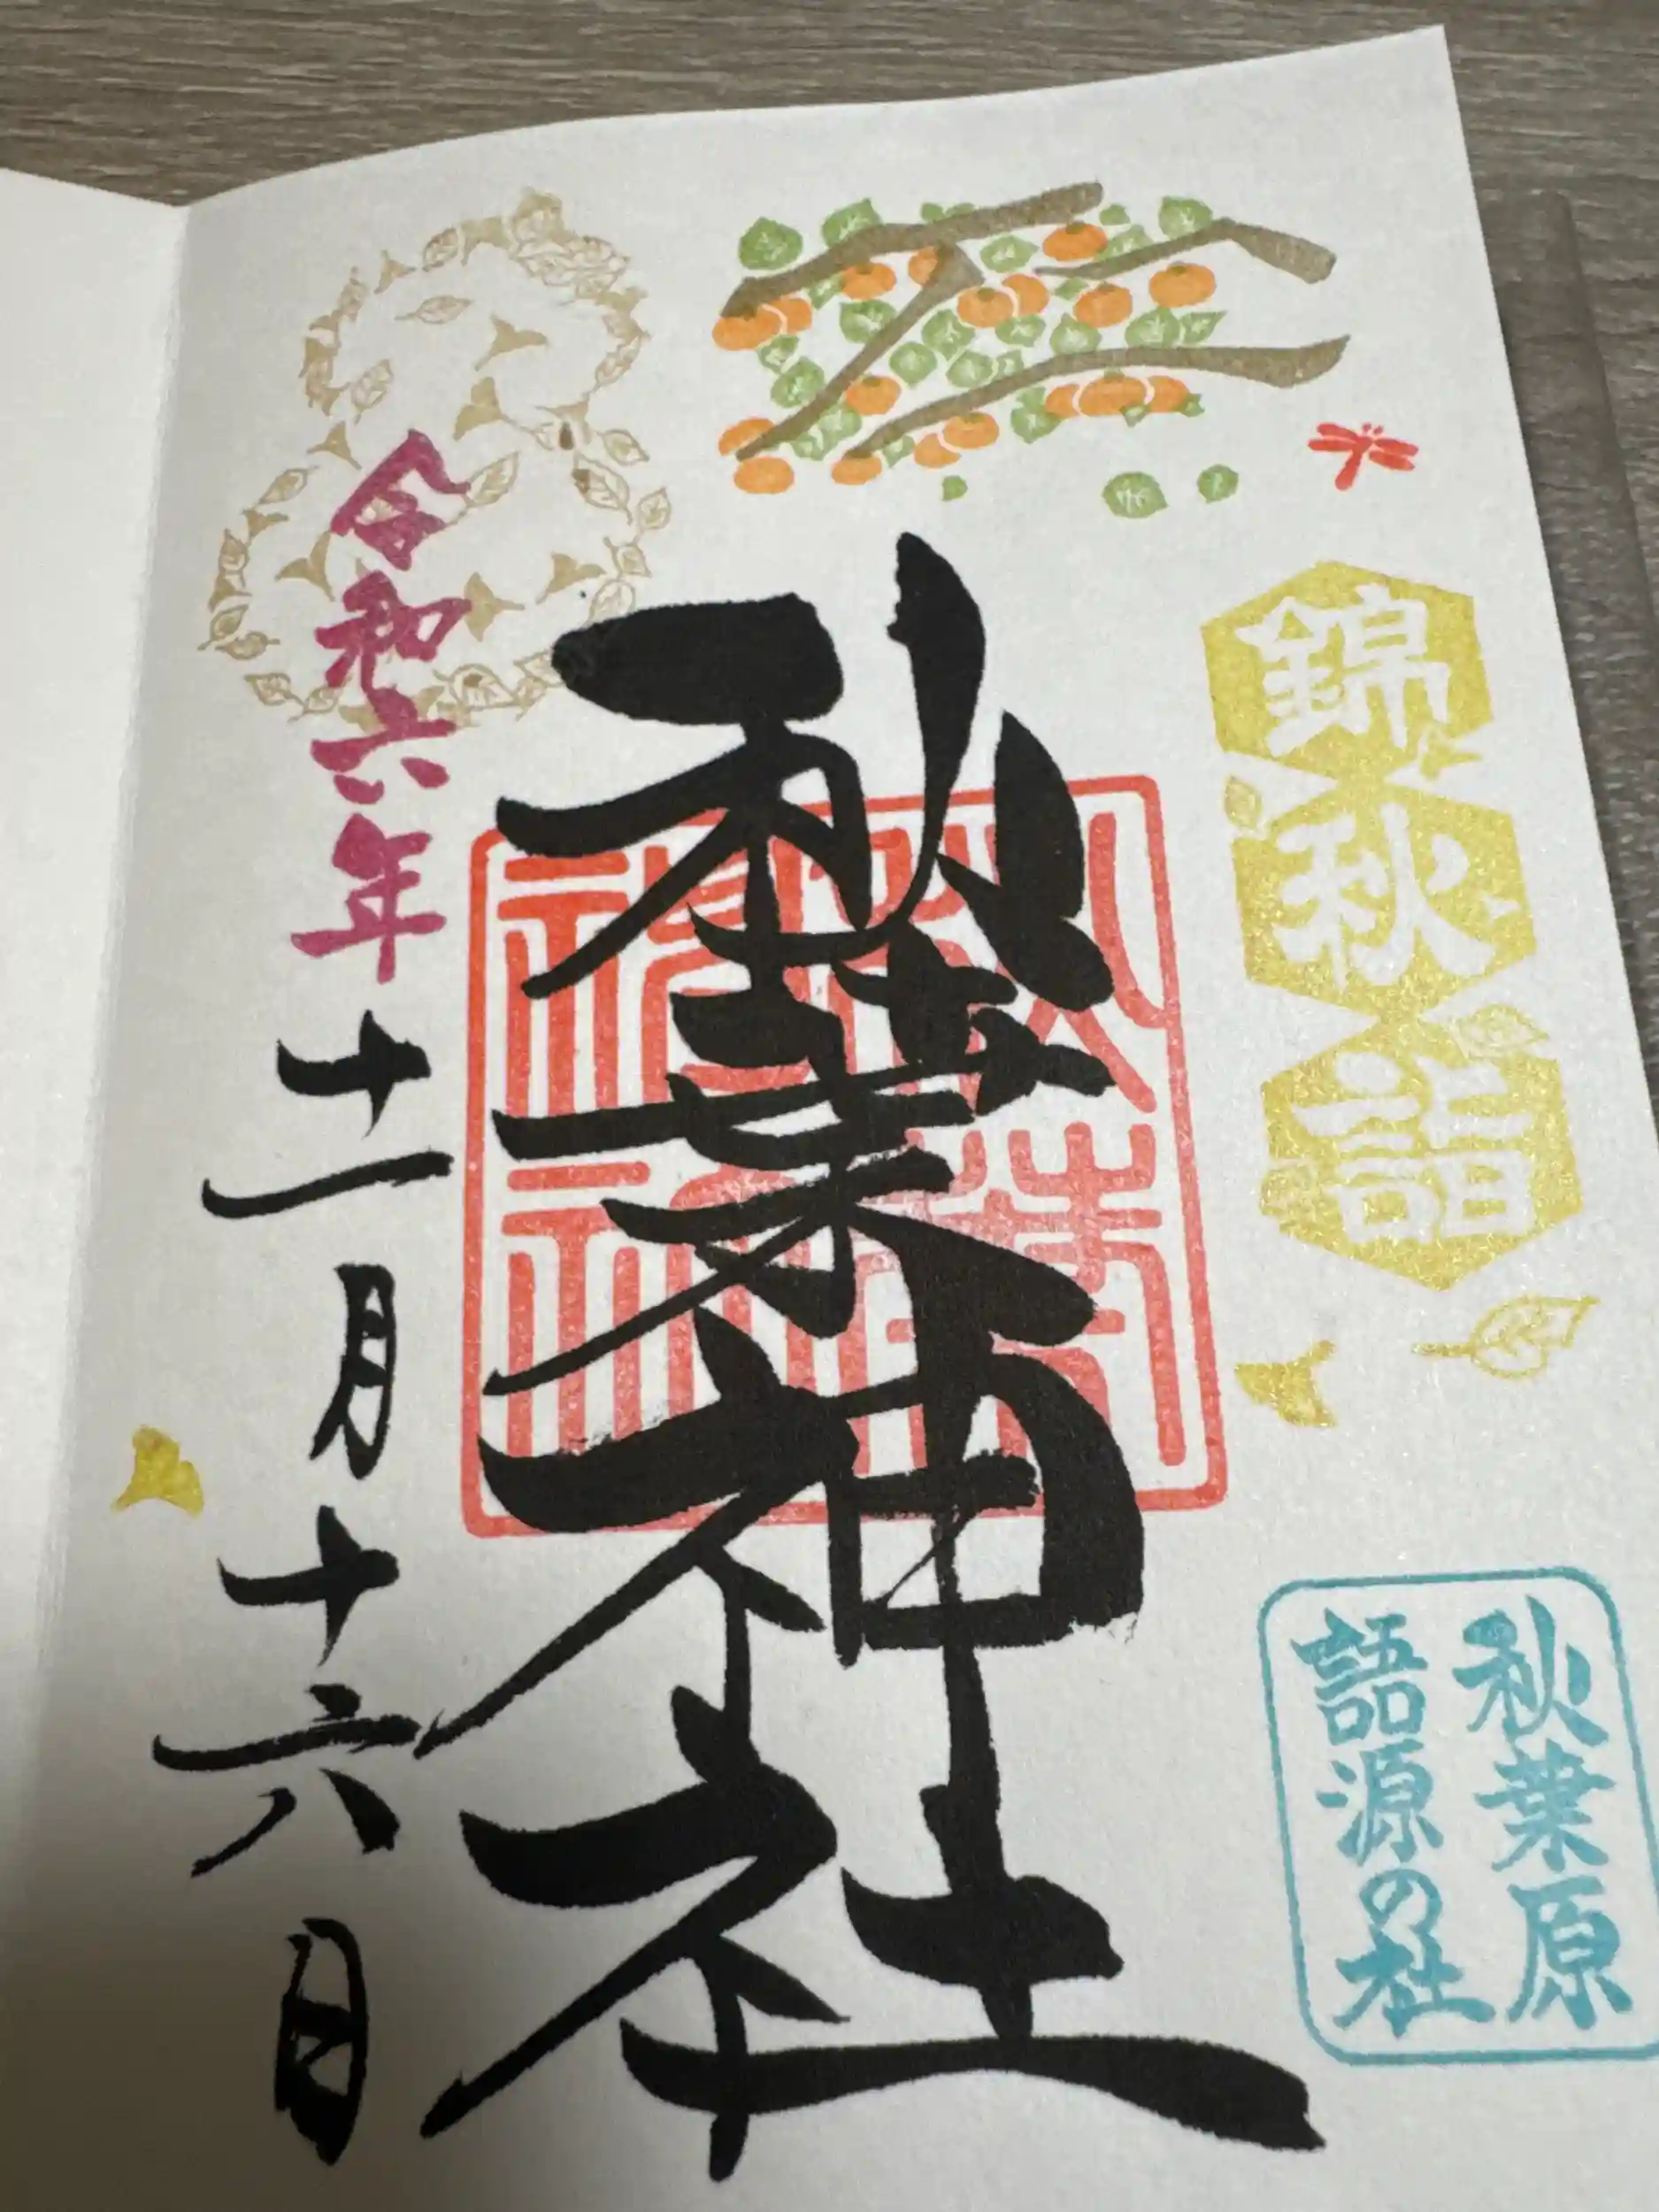 錦秋詣
秋葉原
語源の社
秋葉神社
秋葉
神社
令和六年
十一月十六日